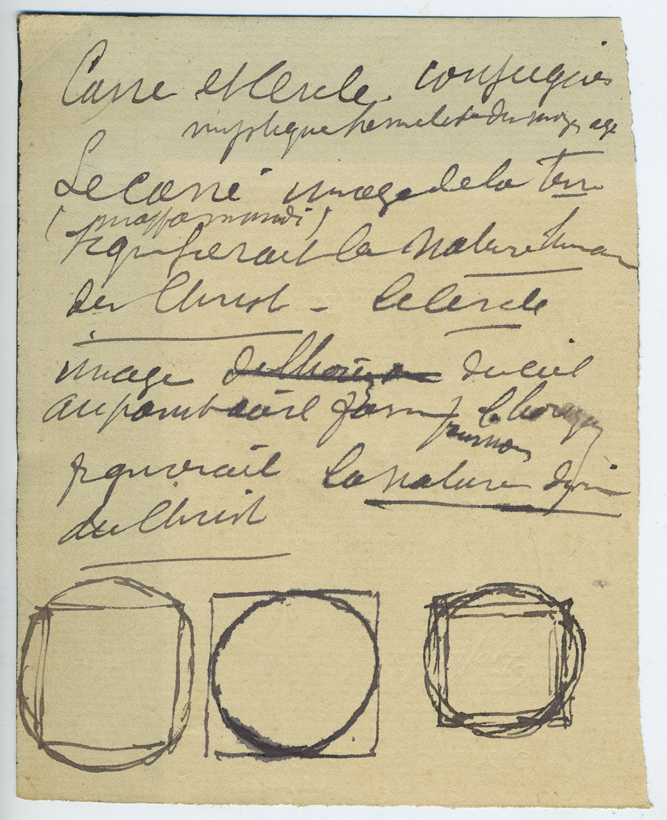 Carré et Cercle. conjugués
mystique du moy. age
Le carré image de la Terre
(mappa mundi)
figurerait la nature humaine
du Christ - le Cercle
image de l'horizon du ciel
au point où il forme l'horizon
figurerait la nature divine
du Christ